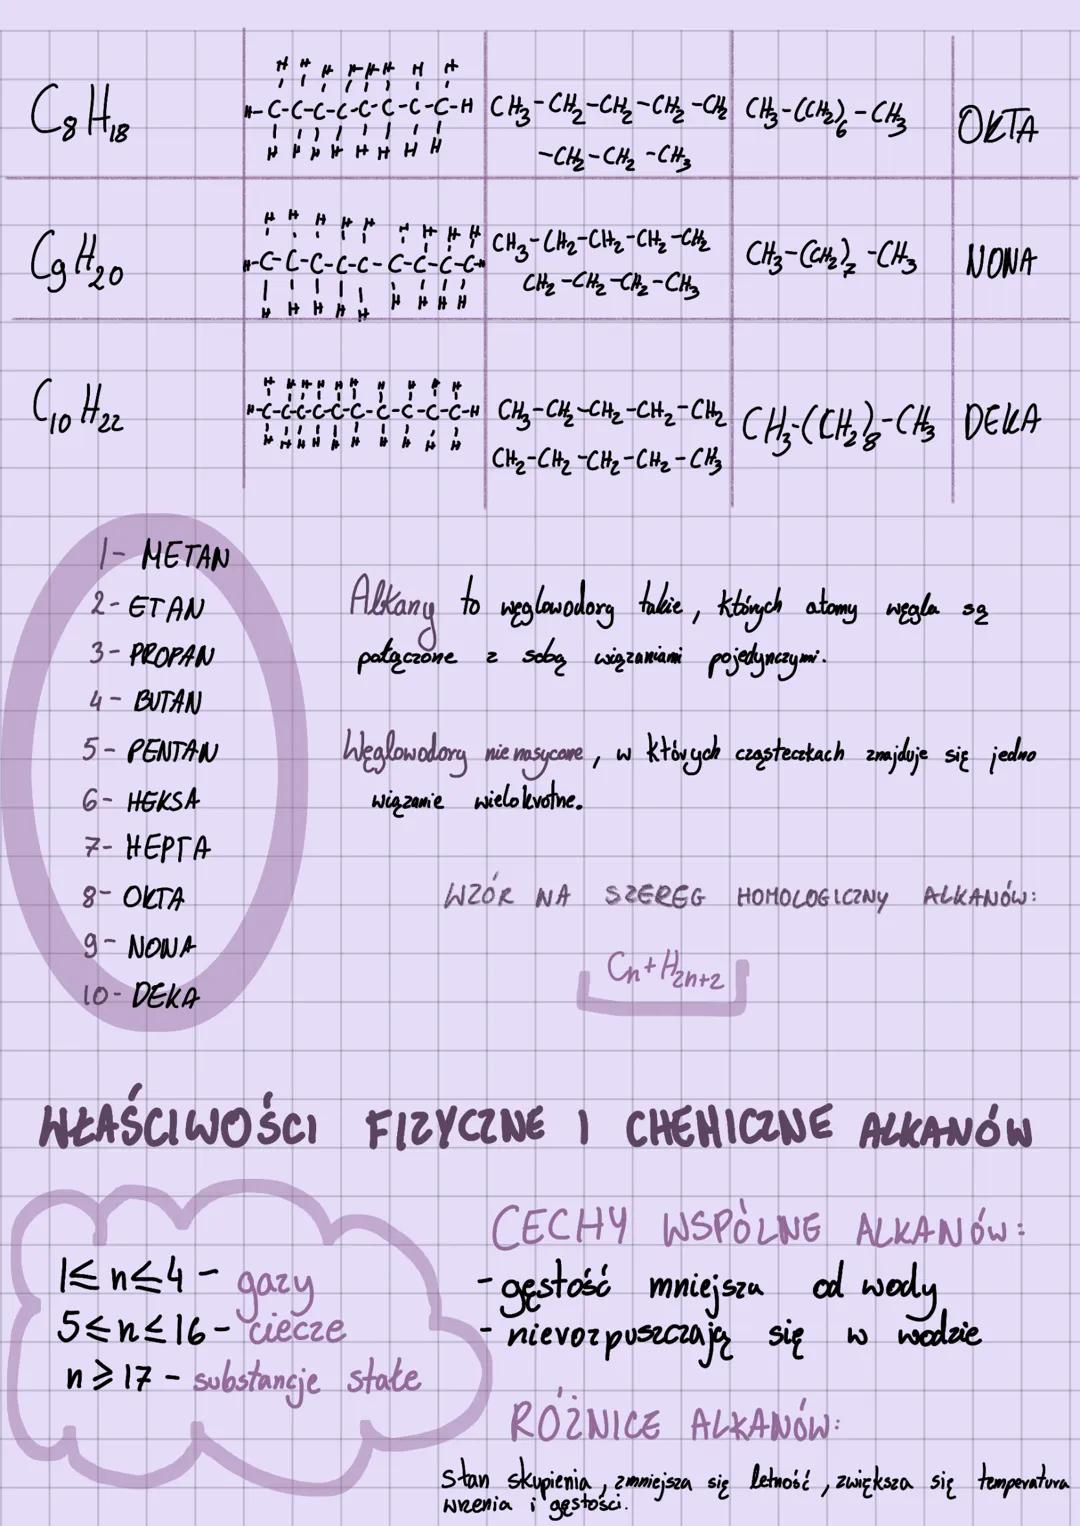 C8H18
H H H H H H H H
H-C-C-C-C-C-C-C-C-H
H H H H H H H H
CH3-CH2-CH2-CH2-CH2
-CH2-CH2-CH3
CH3-(CH2)6-CH3
OKTA
C9H20
H H H H H H H H H
H-C-C-C-C-C-C-C-C-C-H
H H H H H H H H H
CH3-CH2-CH2-CH2-CH2
CH2-CH2-CH2-CH3
CH3-(CH2)7-CH3
NONA
C10H22
H H H H H H H H H H
H-C-C-C-C-C-C-C-C-C-C-H
H H H H H H H H H H
CH3-CH2-CH2-CH2-CH2
CH2-CH2-CH2-CH2-CH3
CH3-(CH2)8-CH3
DEKA
1- METAN
2- ETAN
3- PROPAN
4- BUTAN
5- PENTAN
6- HEKSA
7- HEPTA
8- OKTA
9- NONA
10- DEKA
Alkany to węglowodory takie, których atomy węgla są
połączone z sobą wiązaniami pojedynczymi.
Węglowodory nie nasycone, w których cząsteczkach znajduje się jedno
wiązanie wielokrotne.
WZÓR NA SZEREG HOMOLOGICZNY ALKANÓW:
Cn+H2n+2
WŁAŚCIWOŚCI FIZYCZNE I CHEMICZNE ALKANÓW
1≤n≤4 - gazy
5≤n≤16 - ciecze
n≥17 - substancje stałe
CECHY WSPÓLNE ALKANÓW:
- gęstość mniejsza od wody
- nierozpuszczają się w wodzie
RÓŻNICE ALKANÓW:
Stan skupienia, zmniejsza się lotność, zwiększa się temperatura
wrzenia i gęstości.